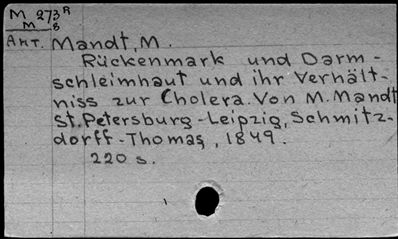 M 273R
M 8
Ант. Mandt, M.
Rückenmark und Darm-
schleimhaut und ihr Verhält-
niss zur Cholera. Von M. Mandt
St. Petersburg-Leipzig, Schmitz-
dorff-Thomas, 1849.
220 s.